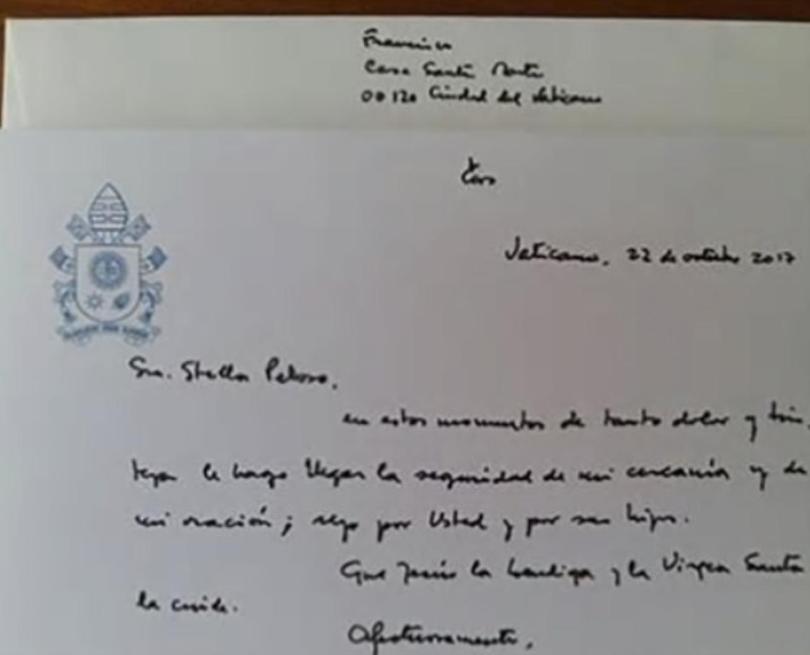 Francisco
Casa Santa Marta
00120 Ciudad del Vaticano
Vaticano, 22 de octubre 2017
Sra. Stella Peloso,
en estos momentos de tanto dolor y tris,
teza le hago llegar la seguridad de mi cercanía y de
mi oración; rezo por Usted y por sus hijos.
Que Jesús la bendiga y la Virgen Santa
la cuide.
Afectuosamente,